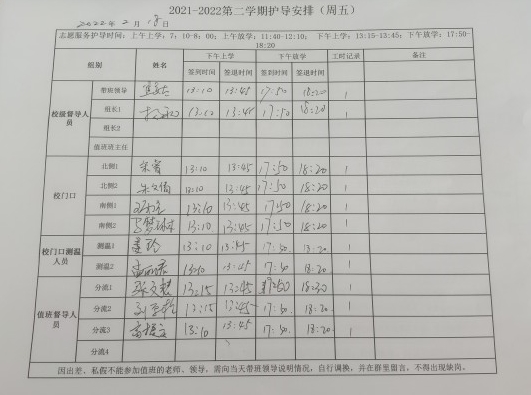 2021-2022第二学期护导安排（周五）
2022年2月18日
志愿服务护导时间：上午上学：7：10-8：00；上午放学：11:40-12:10； 下午上学：13:15-13:45；下午放学：17:50-18:20
组别 姓名 下午上学 下午放学 工时记录 备注
签到时间 签退时间 签到时间 签退时间
校级督导人员
带班领导 13:10 13:45 17:50 18:20 1
组长1 13:12 13:45 17:50 18:20 1
组长2
值班班主任
校门口
北侧1 13:10 13:45 17:50 18:20 1
北侧2 13:10 13:45 17:50 18:20 1
南侧1 13:10 13:45 17:50 18:20 1
南侧2 13:10 13:45 17:50 18:20 1
校门口测温人员
测温1 13:10 13:45 17:50 18:20 1
测温2 13:45 17:50 18:20 1
值班督导人员
分流1 13:15 13:45 1
分流2 13:15 13:45 17:50 18:20 1
分流3 13:10 13:45 17:50 18:20 1
分流4
因出差、私假不能参加值班的老师、领导，需向当天带班领导说明情况，自行调换，并在群里留言，不得出现缺岗。